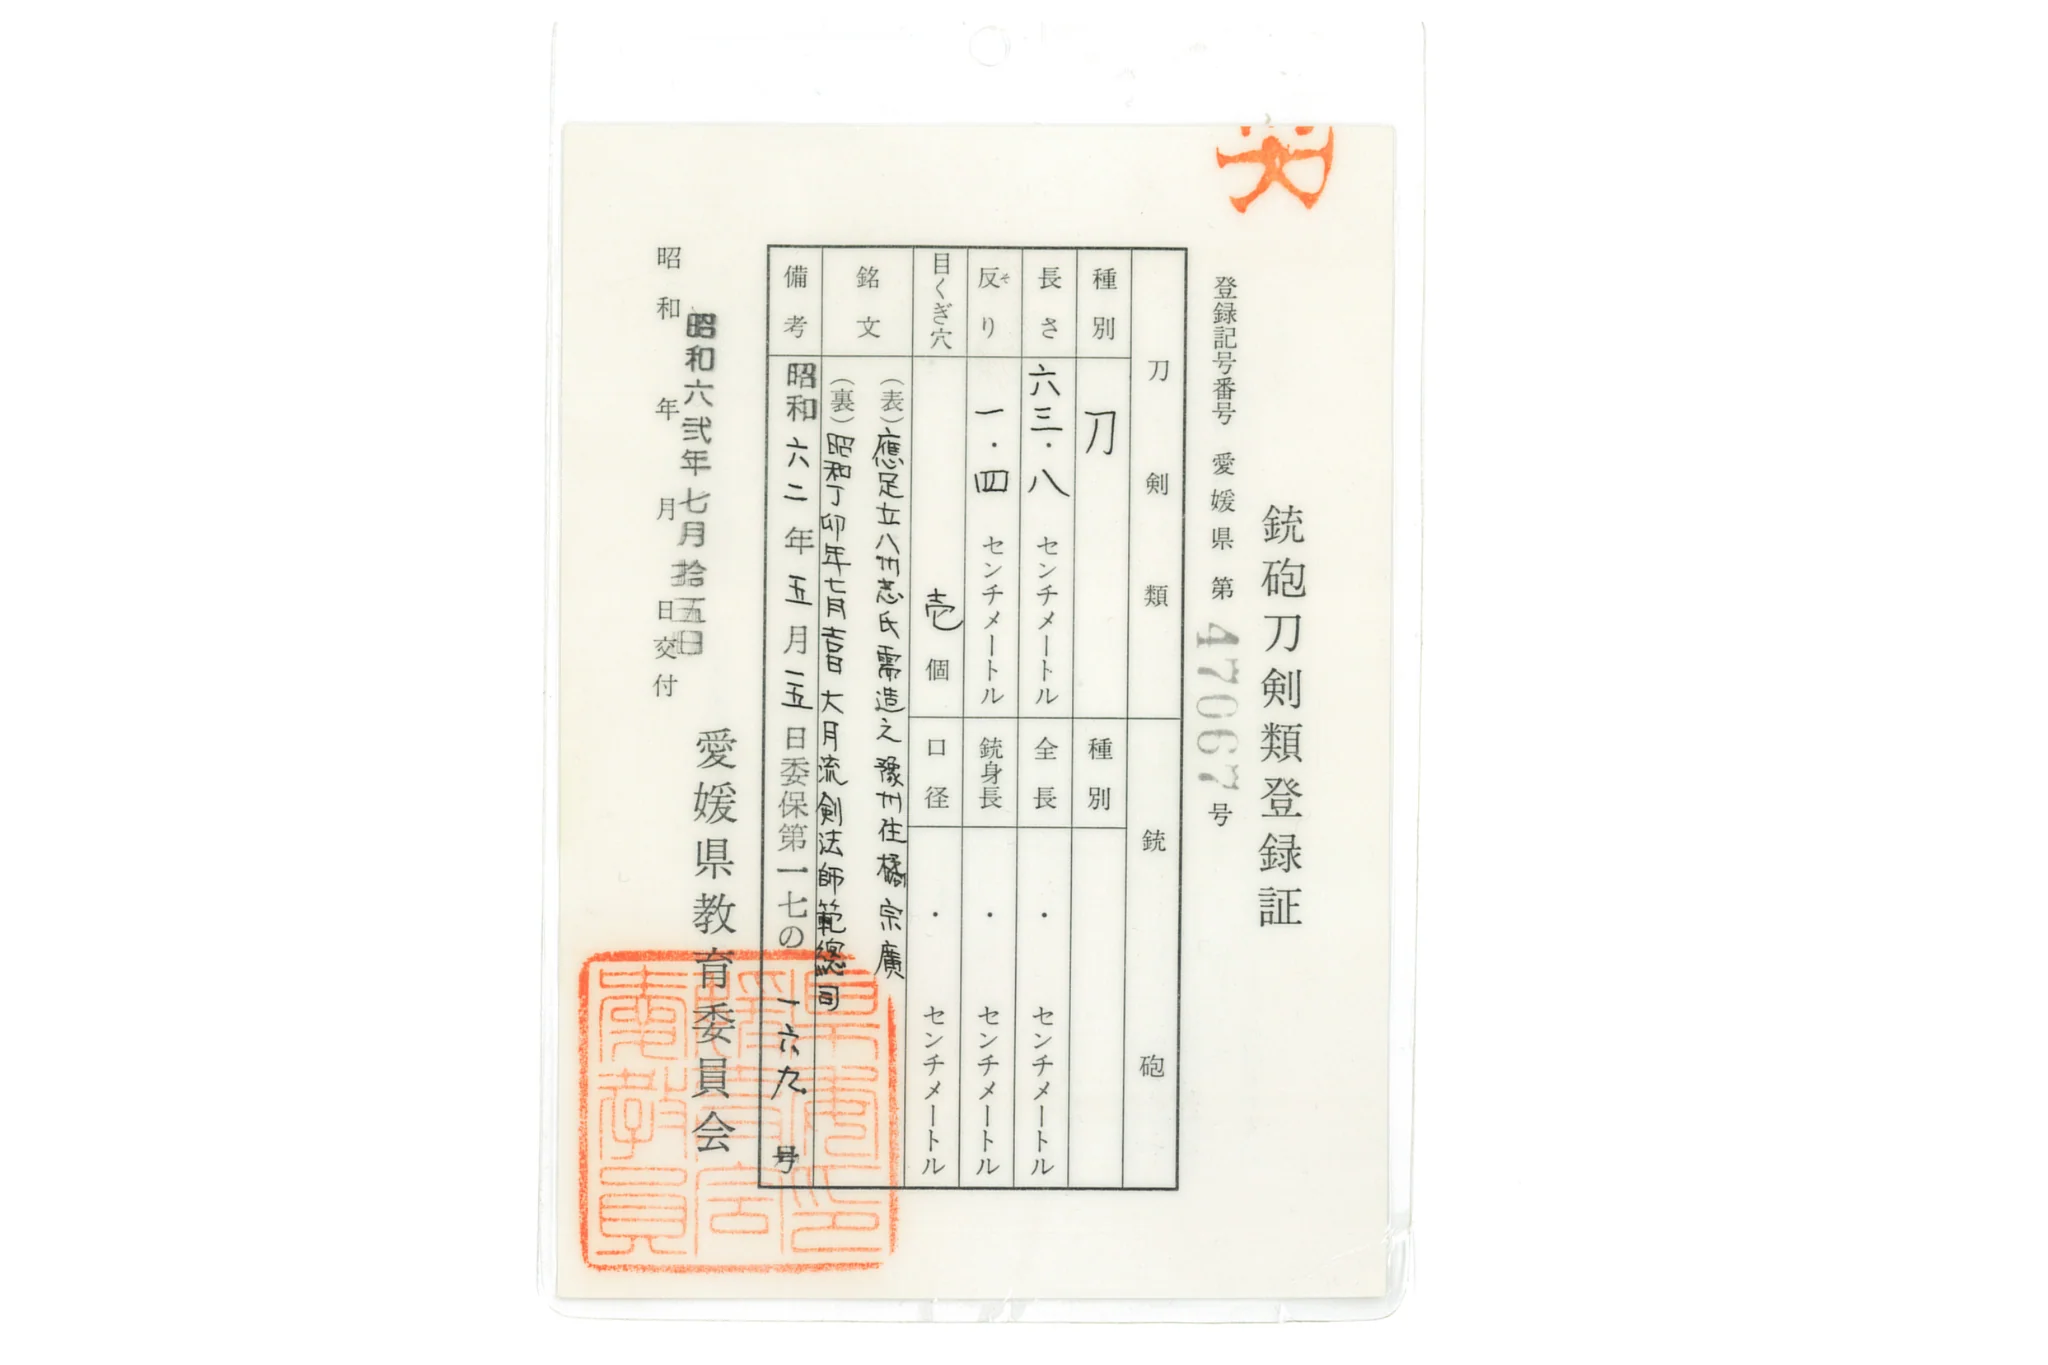 銃砲刀剣類登録証
登録記号番号 愛媛県 第 47067 号
刀剣類
種別 刀
長さ 六三・八 センチメートル
反り 一・四 センチメートル
そ
目くぎ穴 壱 個
銘文
(表)應足立八州志氏需造之 豫州住橘宗廣
(裏)昭和丁卯年七月吉日 大月流剣法師範總司
備考 昭和六二年五月一五日委保第一七の一六九号
銃砲
種別
全長 ・ センチメートル
銃身長 ・ センチメートル
口径 ・ センチメートル
昭和 年 月 日交付
昭和六弐年七月拾五日
愛媛県教育委員会